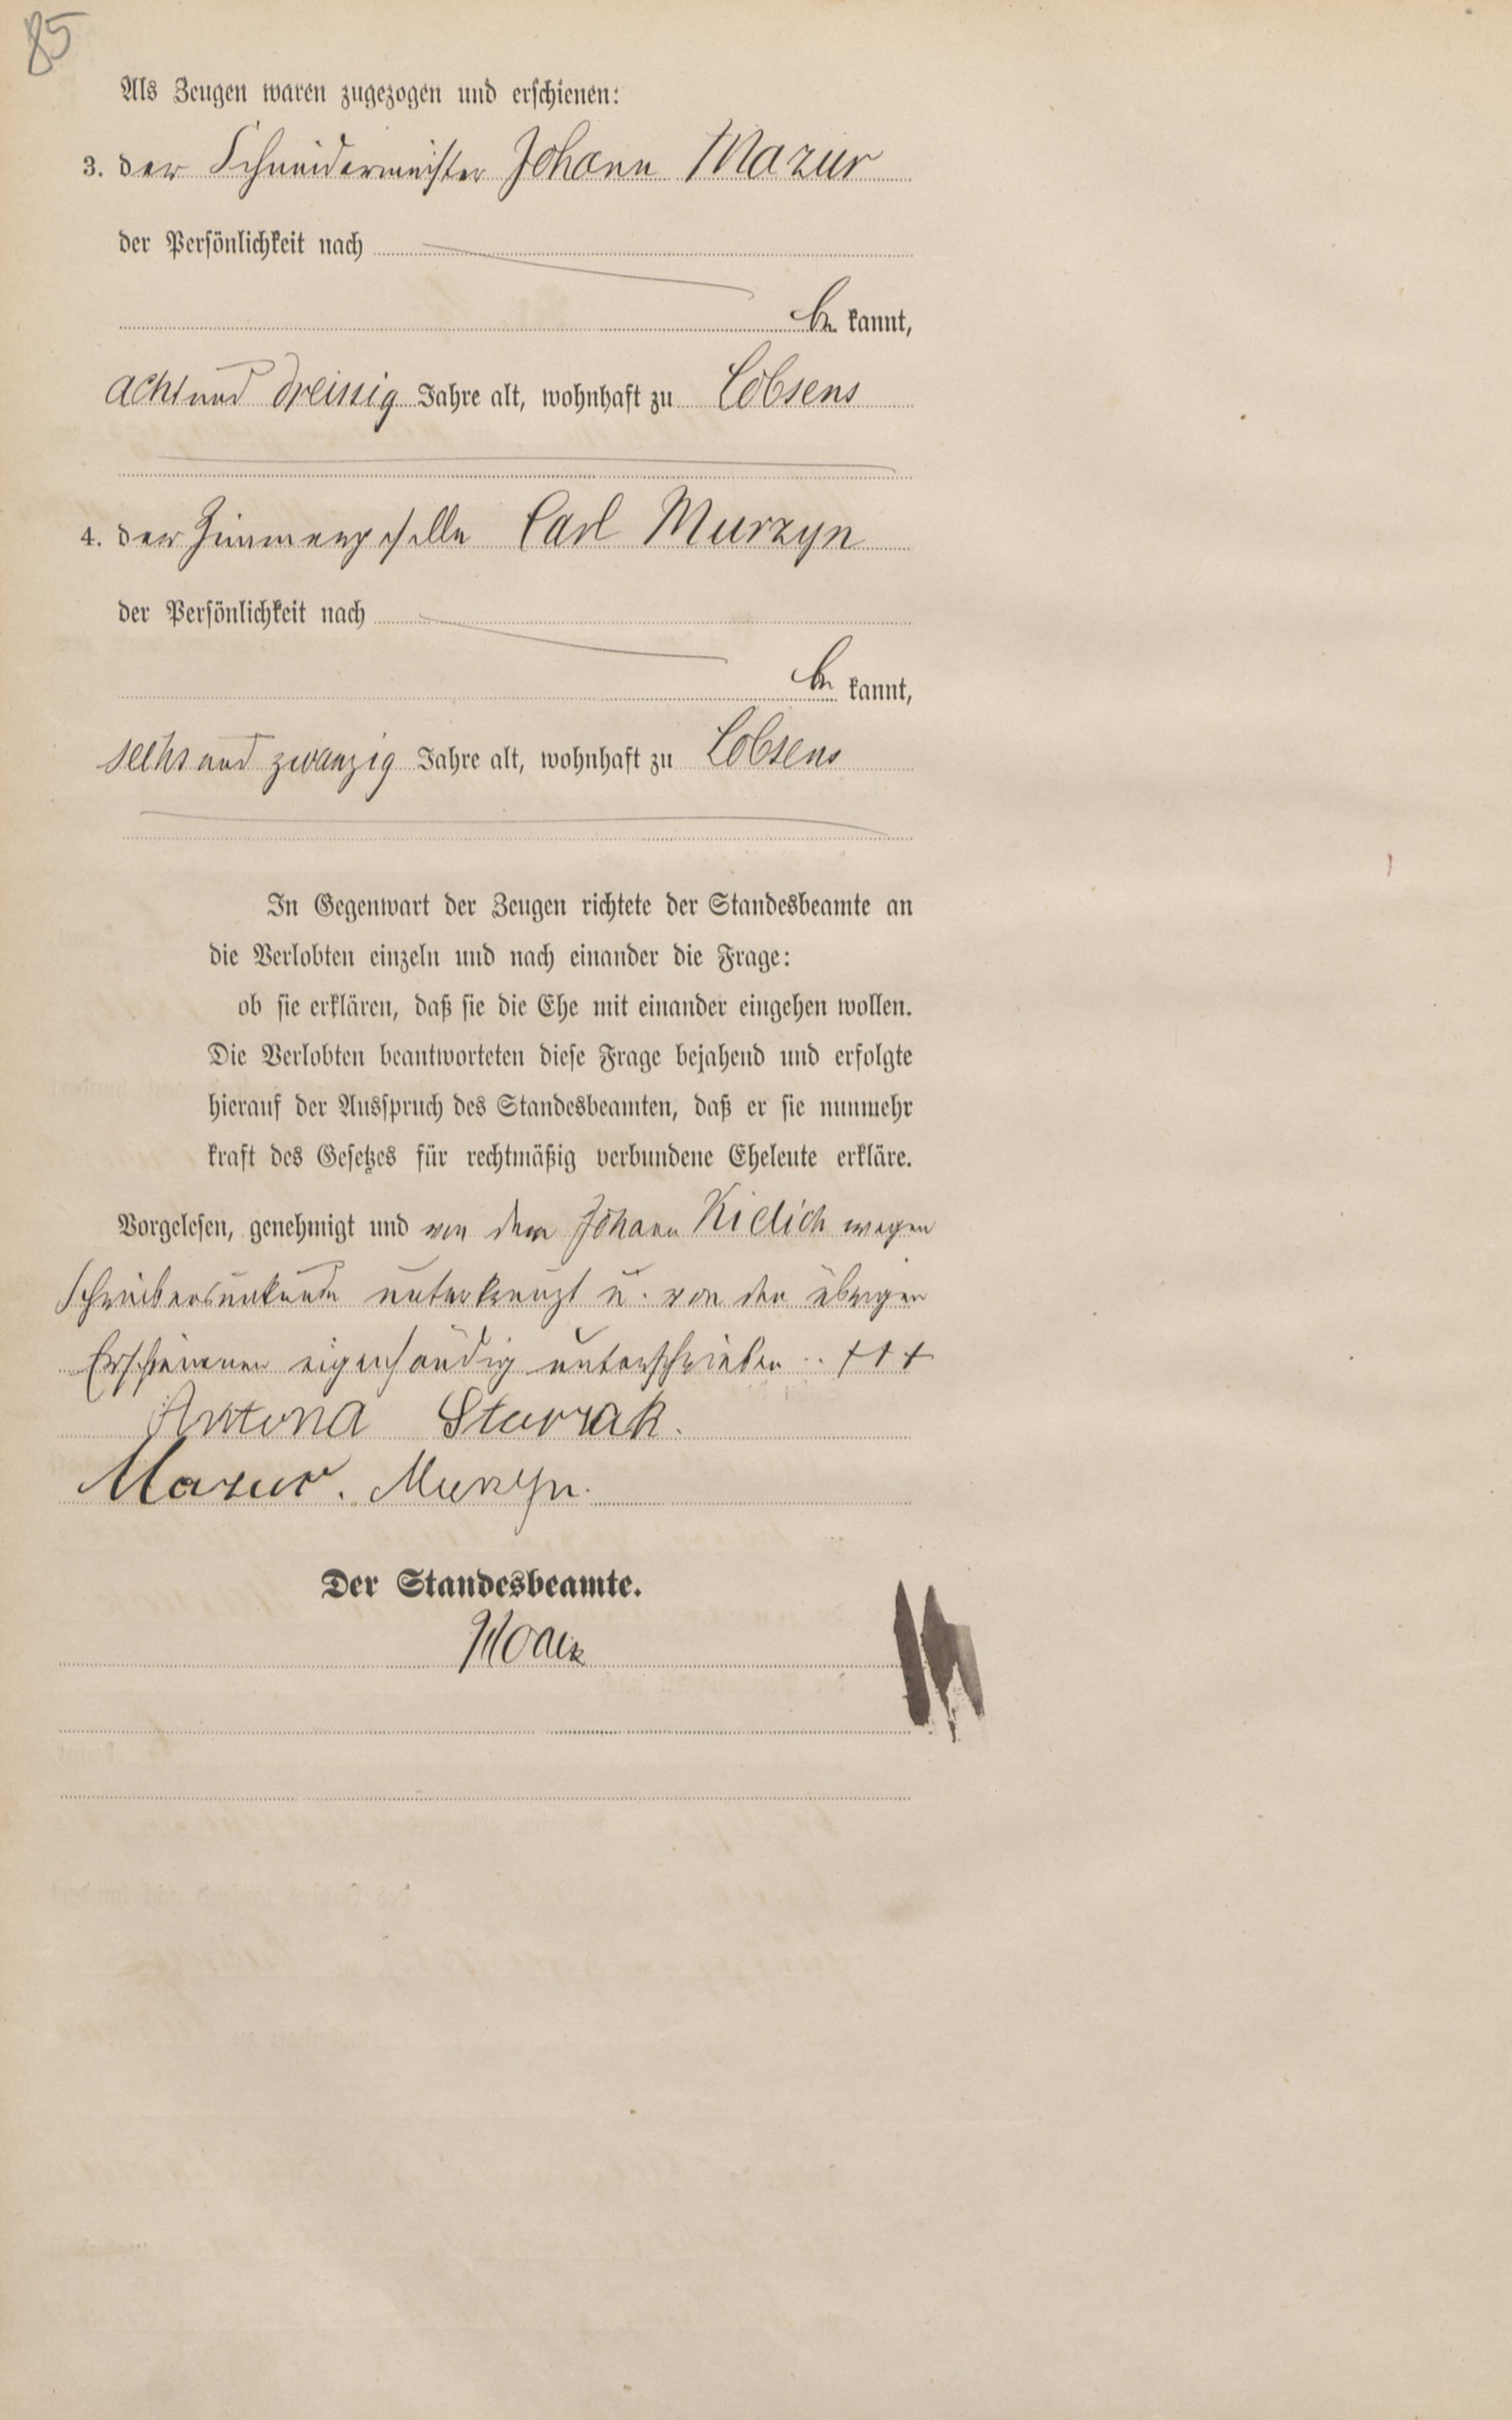 85
Als Zeugen waren zugezogen und erschienen:
3. der Schneidermeister Johann Mazur
der Persönlichkeit nach
be kannt,
acht und dreissig Jahre alt, wohnhaft zu Lobsens
4. der Zimmergeselle Carl Murzyn
der Persönlichkeit nach
be kannt,
sechs und zwanzig Jahre alt, wohnhaft zu Lobsens
In Gegenwart der Zeugen richtete der Standesbeamte an
die Verlobten einzeln und nach einander die Frage:
ob sie erklären, daß sie die Ehe mit einander eingehen wollen.
Die Verlobten beantworteten diese Frage bejahend und erfolgte
hierauf der Ausspruch des Standesbeamten, daß er sie nunmehr
kraft des Gesetzes für rechtmäßig verbundene Eheleute erkläre.
Vorgelesen, genehmigt und von dem Johann Kielich wegen
Schreibensunkunde unterkreuzt u. von den übrigen
Erschienenen eigenhändig unterschrieben .. +++
Antona
Mazur. Murzyn.
Der Standesbeamte.